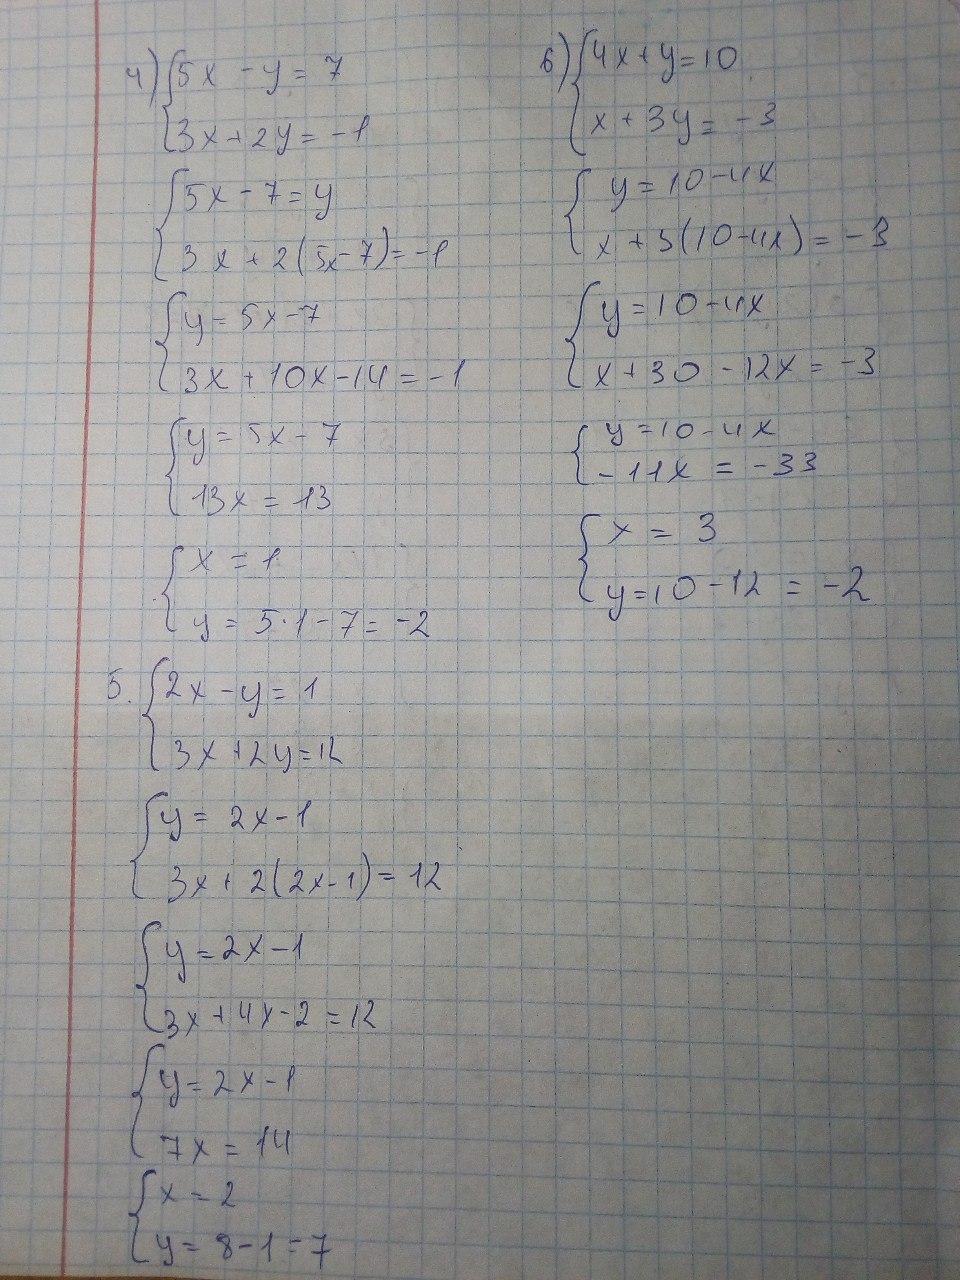 4) { 5x - y = 7
3x + 2y = -1
{ 5x - 7 = y
3x + 2(5x-7) = -1
{ y = 5x - 7
3x + 10x - 14 = -1
{ y = 5x - 7
13x = 13
{ x = 1
y = 5·1 - 7 = -2
5. { 2x - y = 1
3x + 2y = 12
{ y = 2x - 1
3x + 2(2x-1) = 12
{ y = 2x - 1
3x + 4x - 2 = 12
{ y = 2x - 1
7x = 14
{ x = 2
y = 8 - 1 = 7
6) { 4x + y = 10
x + 3y = -3
{ y = 10 - 4x
x + 3(10-4x) = -3
{ y = 10 - 4x
x + 30 - 12x = -3
{ y = 10 - 4x
-11x = -33
{ x = 3
y = 10 - 12 = -2